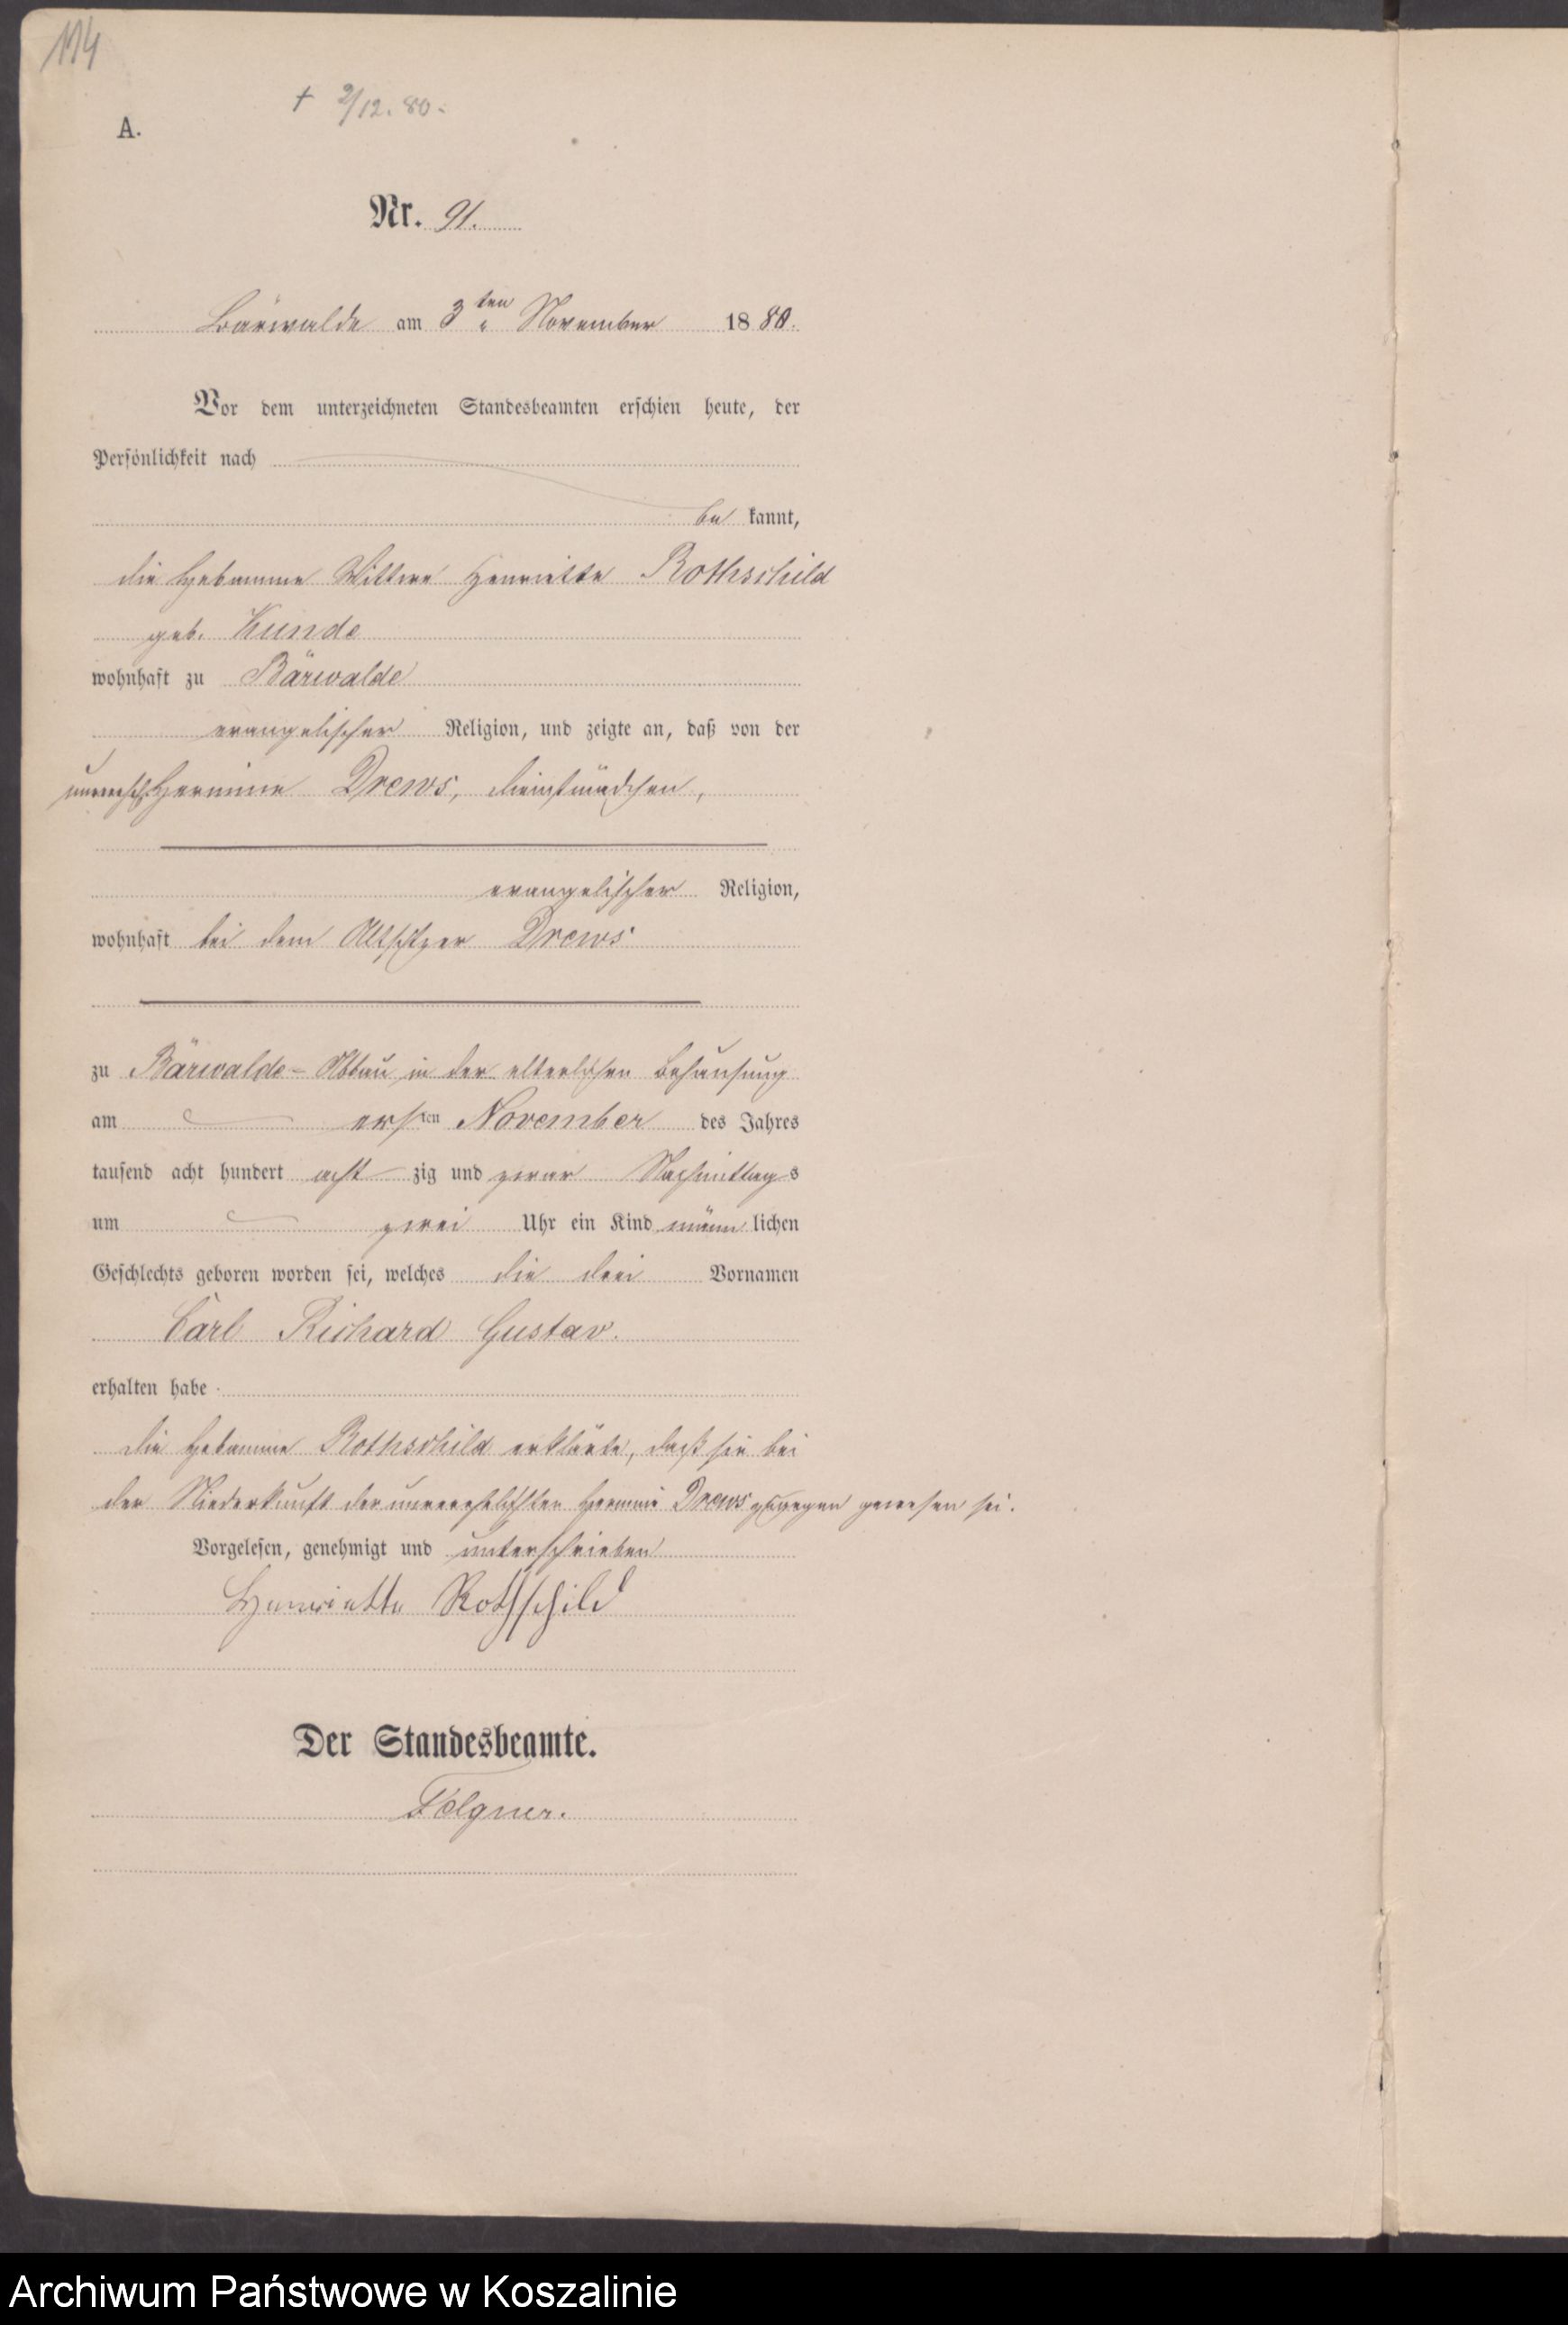 114
+ 2/12. 80.
A.
Nr. 91.
Bärwalde am 3ten November 1880.
Vor dem unterzeichneten Standesbeamten erschien heute, der
Persönlichkeit nach
be kannt,
die Hebamme Wittwe Henriette Rothschild
geb. Kunde
wohnhaft zu Bärwalde
evangelischer Religion, und zeigte an, daß von der
unverehl. Hermine Drews, Dienstmädchen,
evangelischer Religion,
wohnhaft bei dem Altsitzer Drews
zu Bärwalde-Abbau in der elterlichen Behausung
am ersten November des Jahres
tausend acht hundert acht zig und zwar Nachmittags
um zwei Uhr ein Kind männ lichen
Geschlechts geboren worden sei, welches die drei Vornamen
Carl Richard Gustav.
erhalten habe.
Die Hebamme Rothschild erklärte, daß sie bei
der Niederkunft der unverehelichten Hermine Drews zugegen gewesen sei.
Vorgelesen, genehmigt und unterschrieben
Henriette Rothschild
Der Standesbeamte.
Folgner.
Archiwum Państwowe w Koszalinie